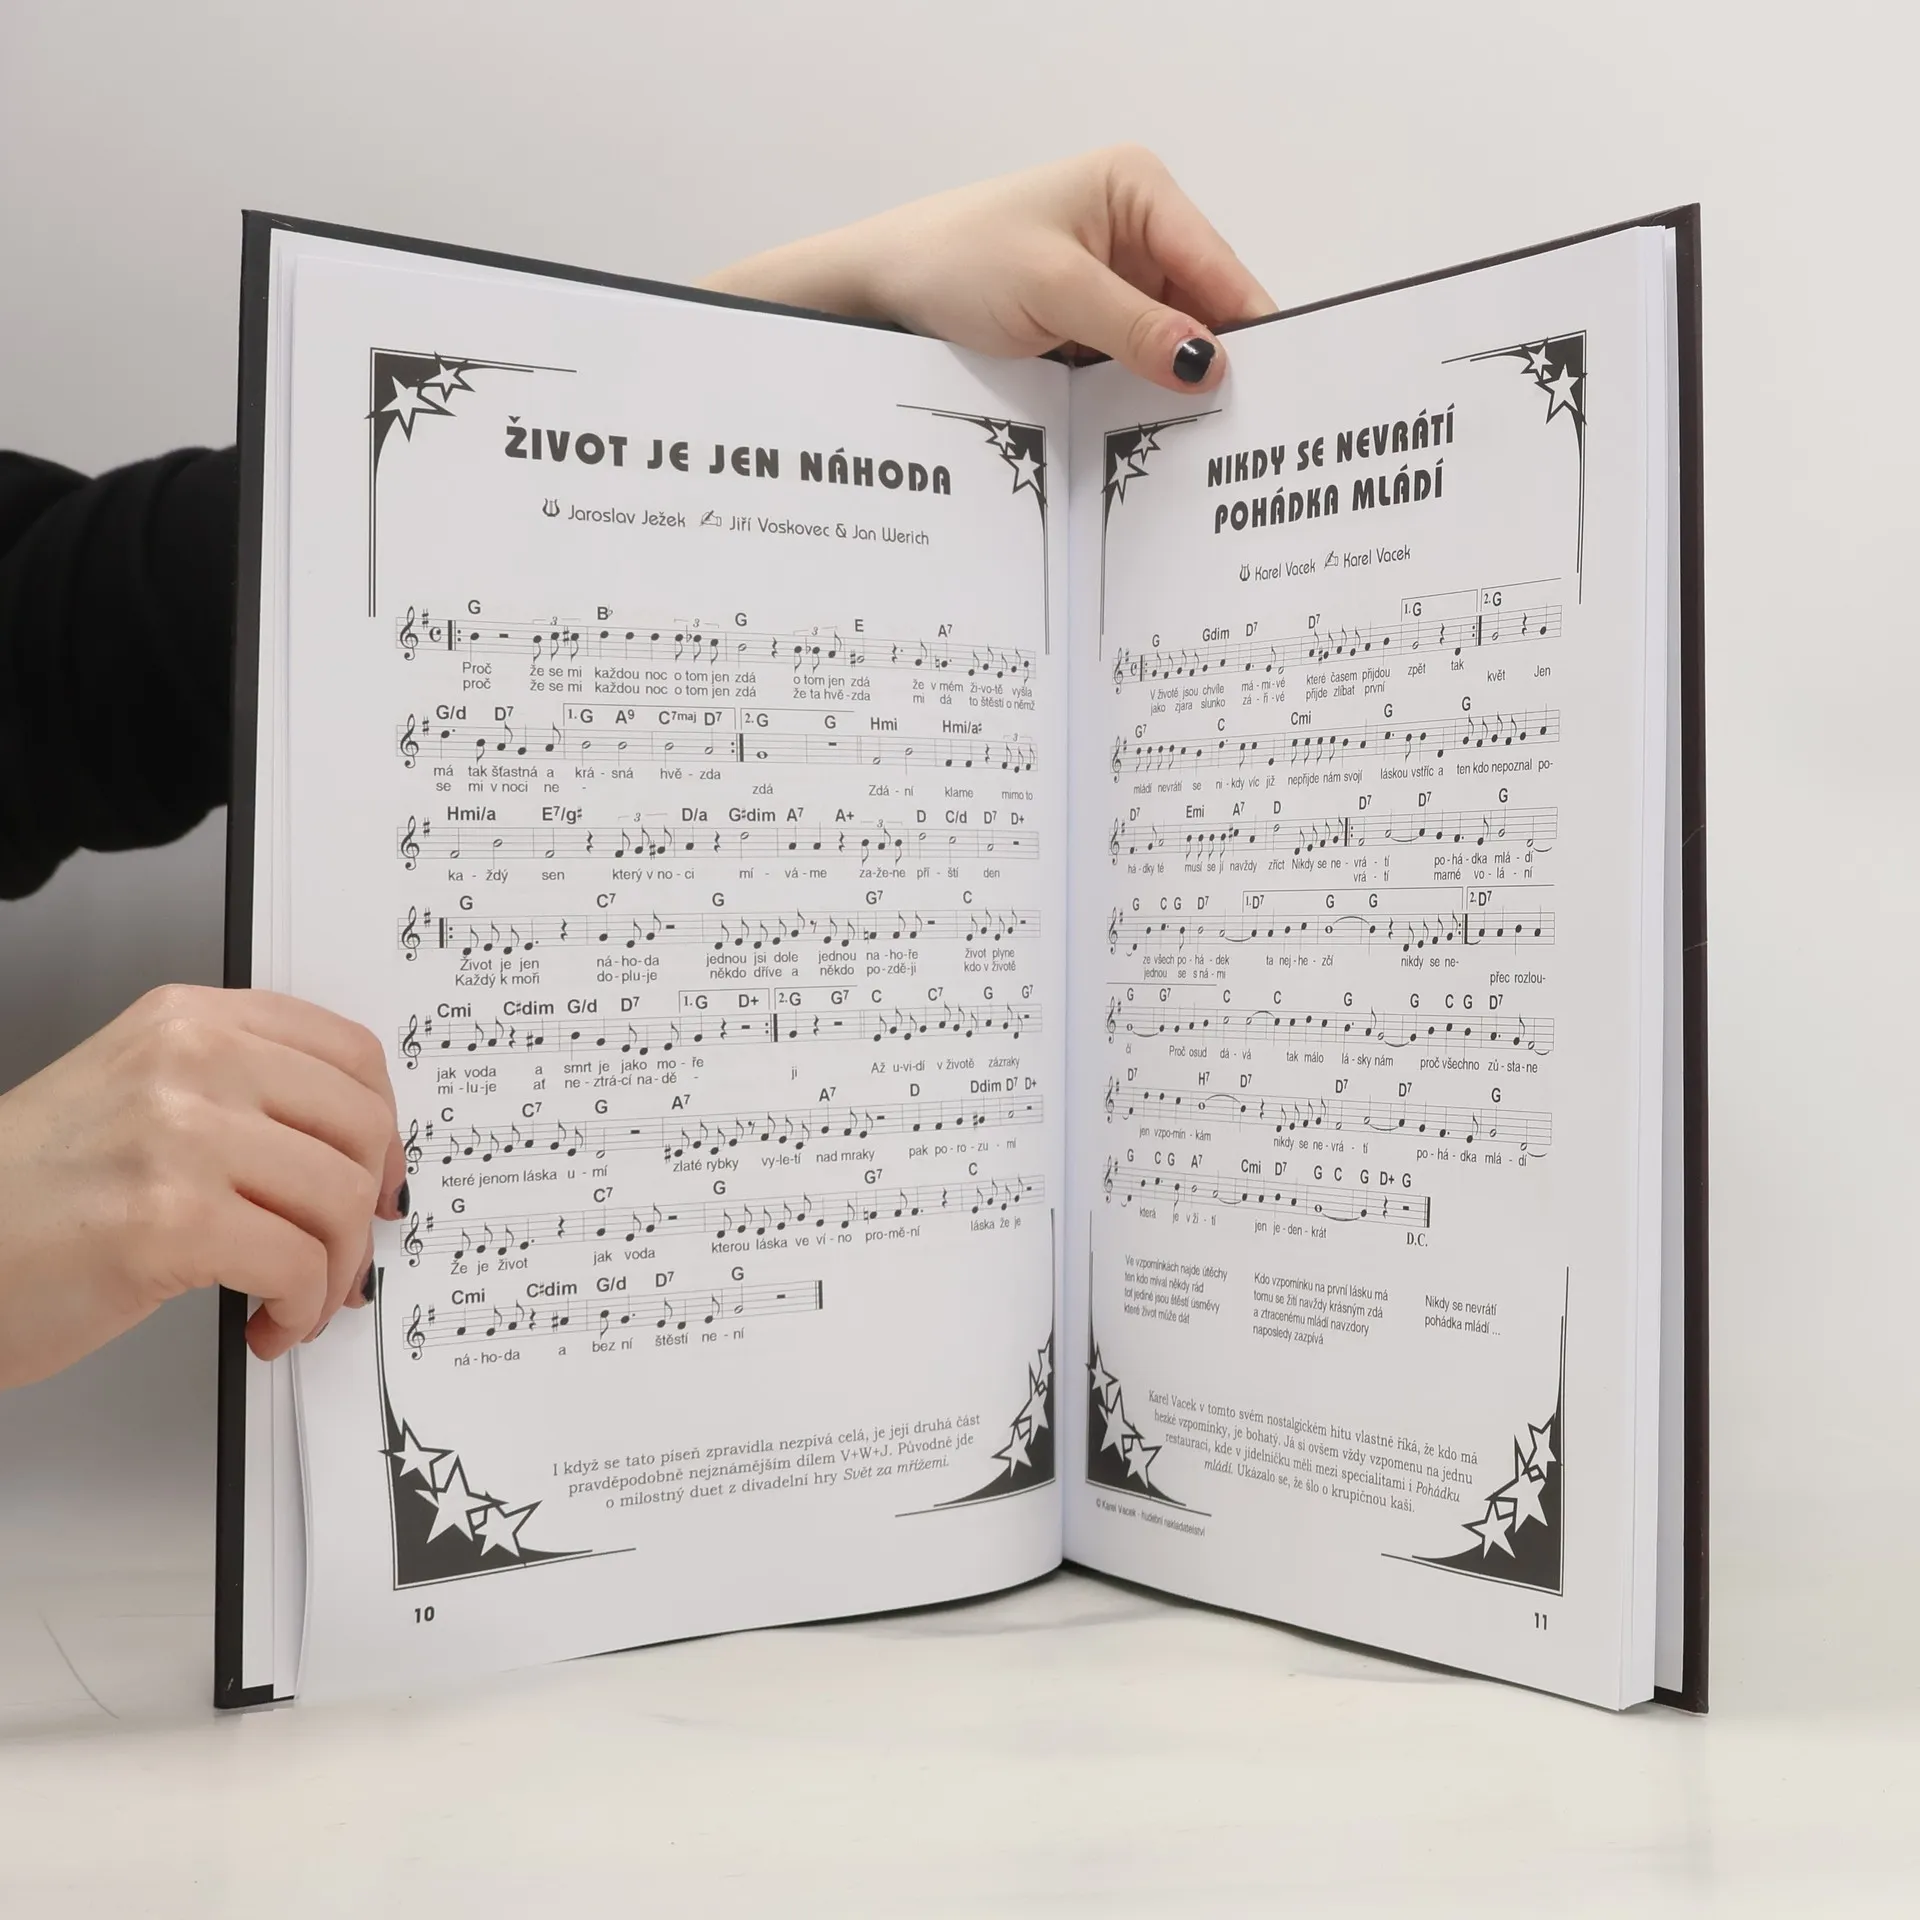 ŽIVOT JE JEN NÁHODA
Jaroslav Ježek Jiří Voskovec & Jan Werich
G B♭ G E A7
3 3 3
Proč že se mi každou noc o tom jen zdá o tom jen zdá že v mém ži-vo-tě vyšla
proč že se mi každou noc o tom jen zdá že ta hvě-zda mi dá to štěstí o němž
G/d D7 1. G A9 C7maj D7 2. G G Hmi Hmi/a♯
3
má tak šťastná a krá - sná hvě - zda
se mi v noci ne - zdá Zdá - ní klame mimo to
Hmi/a E7/g♯ 3 D/a G♯dim A7 A+ 3 D C/d D7 D+
ka - ždý sen který v no - ci mí - vá - me za-že-ne pří - ští den
G C7 G G7 C
Život je jen ná-ho-da jednou jsi dole jednou na-ho-ře život plyne
Každý k moři do-plu-je někdo dříve a někdo po-zdě-ji kdo v životě
Cmi C♯dim G/d D7 1. G D+ 2. G G7 C C7 G G7
jak voda a smrt je jako mo - ře
mi-lu-je ať ne-ztrá-cí na-dě - ji Až u-vi-dí v životě zázraky
C C7 G A7 A7 D Ddim D7 D+
které jenom láska u - mí zlaté rybky vy-le-tí nad mraky pak po-ro-zu - mí
G C7 G G7 C
Že je život jak voda kterou láska ve ví-no pro-mě-ní láska že je
Cmi C♯dim G/d D7 G
ná-ho-da a bez ní štěstí ne-ní
I když se tato píseň zpravidla nezpívá celá, je její druhá část
pravděpodobně nejznámějším dílem V+W+J. Původně jde
o milostný duet z divadelní hry Svět za mřížemi.
10
NIKDY SE NEVRÁTÍ
POHÁDKA MLÁDÍ
Karel Vacek Karel Vacek
G Gdim D7 D7 1. G 2. G
V životě jsou chvíle má-mi-vé které časem přijdou zpět tak květ Jen
jako zjara slunko zá-ři-vé přijde zlíbat první
G7 C Cmi G G
mládí nevrátí se ni-kdy víc již nepřijde nám svojí láskou vstříc a ten kdo nepoznal po-
D7 Emi A7 D D7 D7 G
há-dky té musí se jí navždy zříct Nikdy se ne - vrá - tí po-há-dka mlá - dí
vrá - tí marné vo-lá - ní
G C G D7 1. D7 G G 2. D7
ze všech po-há-dek ta nej-he-zčí nikdy se ne-
jednou se s ná-mi přec rozlou-
G G7 C C G G C G D7
čí Proč osud dá - vá tak málo lá-sky nám proč všechno zů-sta-ne
D7 H7 D7 D7 D7 G
jen vzpo-mín-kám nikdy se ne-vrá - tí po-há-dka mlá - dí
G C G A7 Cmi D7 G C G D+ G
která je v ži - tí jen je-den-krát
D.C.
Ve vzpomínkách najde útěchy
ten kdo míval někdy rád
toť jediné jsou štěstí úsměvy
které život může dát
Kdo vzpomínku na první lásku má
tomu se žití navždy krásným zdá
a ztracenému mládí navzdory
naposledy zazpívá
Nikdy se nevrátí
pohádka mládí ...
Karel Vacek v tomto svém nostalgickém hitu vlastně říká, že kdo má
hezké vzpomínky, je bohatý. Já si ovšem vždy vzpomenu na jednu
restauraci, kde v jídelníčku měli mezi specialitami i Pohádku
mládí. Ukázalo se, že šlo o krupičnou kaši.
© Karel Vacek - hudební nakladatelství
11